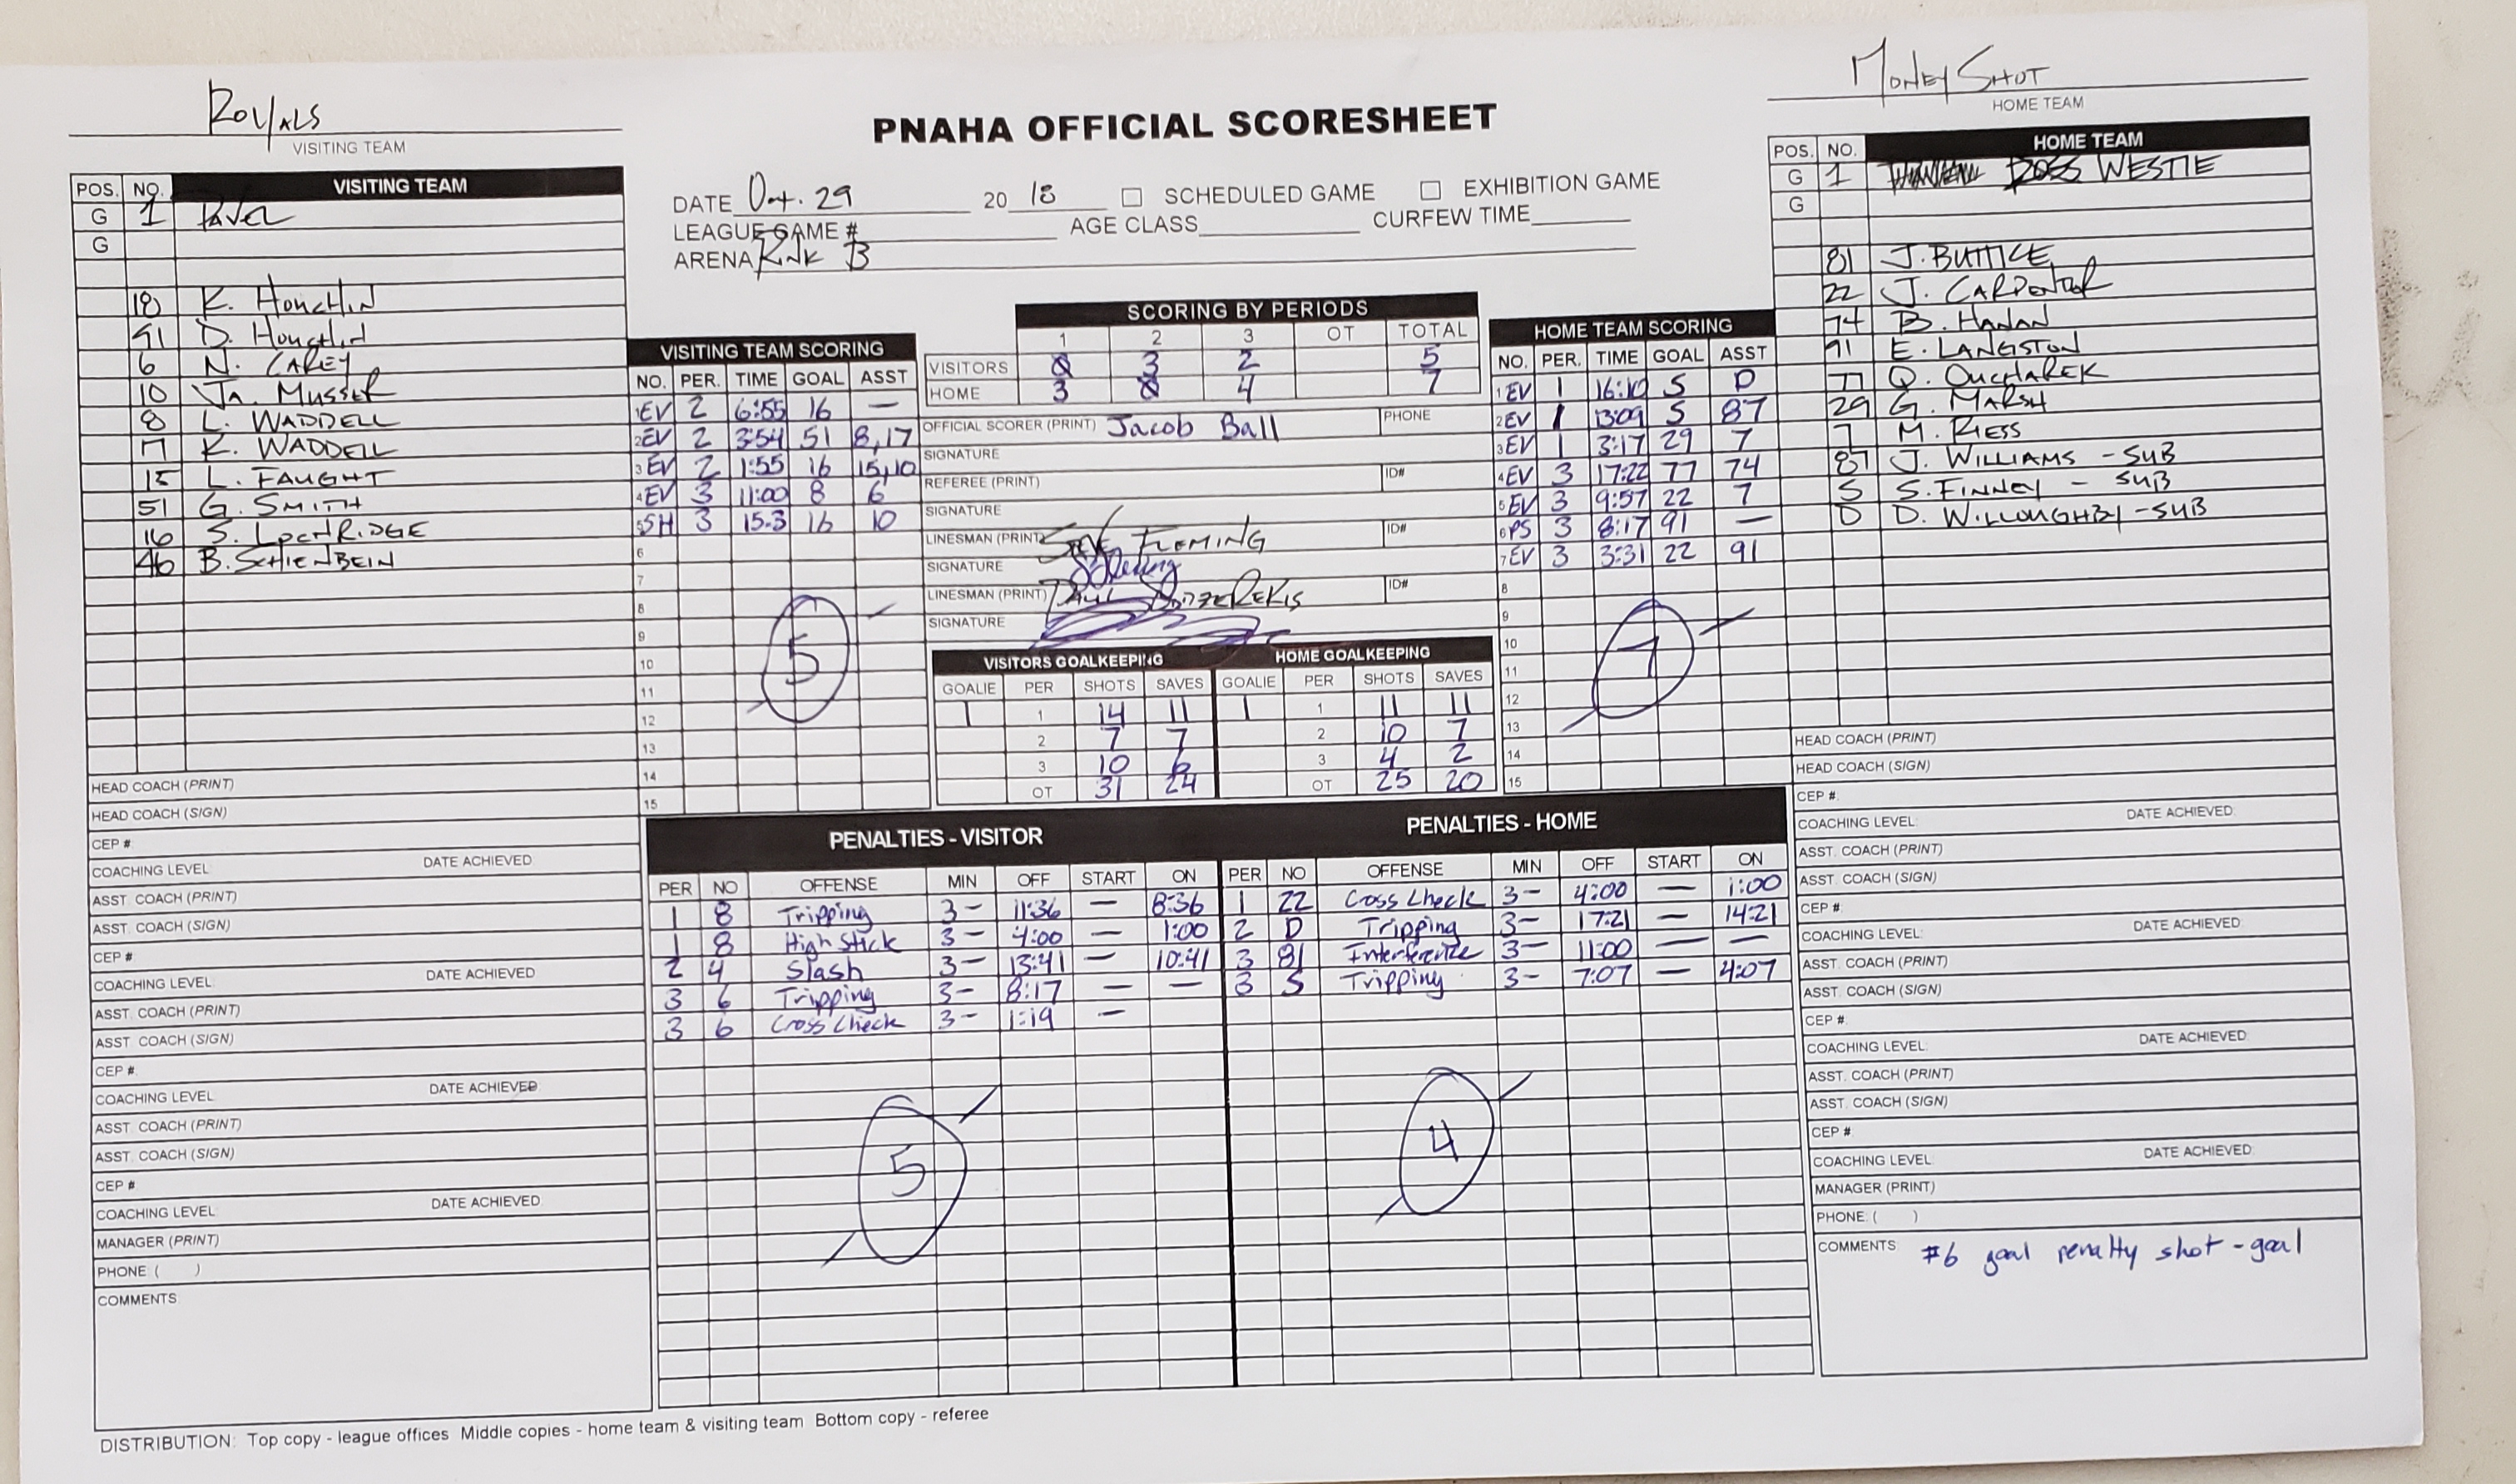 Royals
VISITING TEAM
Money Shot
HOME TEAM
PNAHA OFFICIAL SCORESHEET
DATE Oct. 29 20 18 SCHEDULED GAME EXHIBITION GAME
LEAGUE GAME # AGE CLASS CURFEW TIME
ARENA Rink B
POS. NO. VISITING TEAM
G 1 Pavel
G
18 K. Houchlin
91 D. Houchlin
6 N. CAREY
10 Ja. MUSSER
8 L. WADDELL
17 K. WADDELL
15 L. FAUGHT
51 G. SMITH
16 S. LOCHRIDGE
46 B. SCHIENBEIN
HEAD COACH (PRINT)
HEAD COACH (SIGN)
CEP #
COACHING LEVEL DATE ACHIEVED
ASST. COACH (PRINT)
ASST. COACH (SIGN)
CEP #
COACHING LEVEL DATE ACHIEVED
ASST. COACH (PRINT)
ASST. COACH (SIGN)
CEP #
COACHING LEVEL DATE ACHIEVED
ASST. COACH (PRINT)
ASST. COACH (SIGN)
CEP #
COACHING LEVEL DATE ACHIEVED
MANAGER (PRINT)
PHONE ( )
COMMENTS
VISITING TEAM SCORING
NO. PER. TIME GOAL ASST
1 EV 2 6:55 16 —
2 EV 2 3:54 51 8,17
3 EV 2 1:55 16 15,10
4 EV 3 11:00 8 6
5 SH 3 15.3 16 10
6
7
8
9
10
11
12
13
14
15
5
SCORING BY PERIODS
1 2 3 OT TOTAL
VISITORS 0 3 2 5
HOME 3 0 4 7
OFFICIAL SCORER (PRINT) Jacob Ball PHONE
SIGNATURE
REFEREE (PRINT) ID#
SIGNATURE
LINESMAN (PRINT) STEVE FLEMING ID#
SIGNATURE
LINESMAN (PRINT) PAUL ID#
SIGNATURE
VISITORS GOALKEEPING HOME GOALKEEPING
GOALIE PER SHOTS SAVES GOALIE PER SHOTS SAVES
1 1 14 11 1 1 11 11
2 7 7 2 10 7
3 10 6 3 4 2
OT 31 24 OT 25 20
HOME TEAM SCORING
NO. PER. TIME GOAL ASST
1 EV 1 16:10 S D
2 EV 1 13:09 S 87
3 EV 1 3:17 29 7
4 EV 3 17:22 77 74
5 EV 3 9:57 22 7
6 PS 3 8:17 91 —
7 EV 3 3:31 22 91
8
9
10
11
12
13
14
15
7
POS. NO. HOME TEAM
G 1 WESTIE
G
81 J. BUTTICE
22 J. CARPENTER
74 B. HANAN
91 E. LANGSTON
77 Q. OUCHAREK
29 G. MARSH
7 M. RIESS
87 J. WILLIAMS - SUB
S S. FINNEY - SUB
D D. WILLOUGHBY - SUB
HEAD COACH (PRINT)
HEAD COACH (SIGN)
CEP #
COACHING LEVEL DATE ACHIEVED
ASST. COACH (PRINT)
ASST. COACH (SIGN)
CEP #
COACHING LEVEL DATE ACHIEVED
ASST. COACH (PRINT)
ASST. COACH (SIGN)
CEP #
COACHING LEVEL DATE ACHIEVED
ASST. COACH (PRINT)
ASST. COACH (SIGN)
CEP #
COACHING LEVEL DATE ACHIEVED
MANAGER (PRINT)
PHONE ( )
COMMENTS #6 goal penalty shot - goal
PENALTIES - VISITOR PENALTIES - HOME
PER NO OFFENSE MIN OFF START ON PER NO OFFENSE MIN OFF START ON
1 8 Tripping 3 - 11:36 — 8:36 1 22 Cross Check 3 - 4:00 — 1:00
1 8 High Stick 3 - 4:00 — 1:00 2 D Tripping 3 - 17:21 — 14:21
2 4 Slash 3 - 13:41 — 10:41 3 81 Interference 3 - 11:00 — —
3 6 Tripping 3 - 8:17 — — 3 S Tripping 3 - 7:07 — 4:07
3 6 Cross Check 3 - 1:19 —
5 4
DISTRIBUTION: Top copy - league offices Middle copies - home team & visiting team Bottom copy - referee